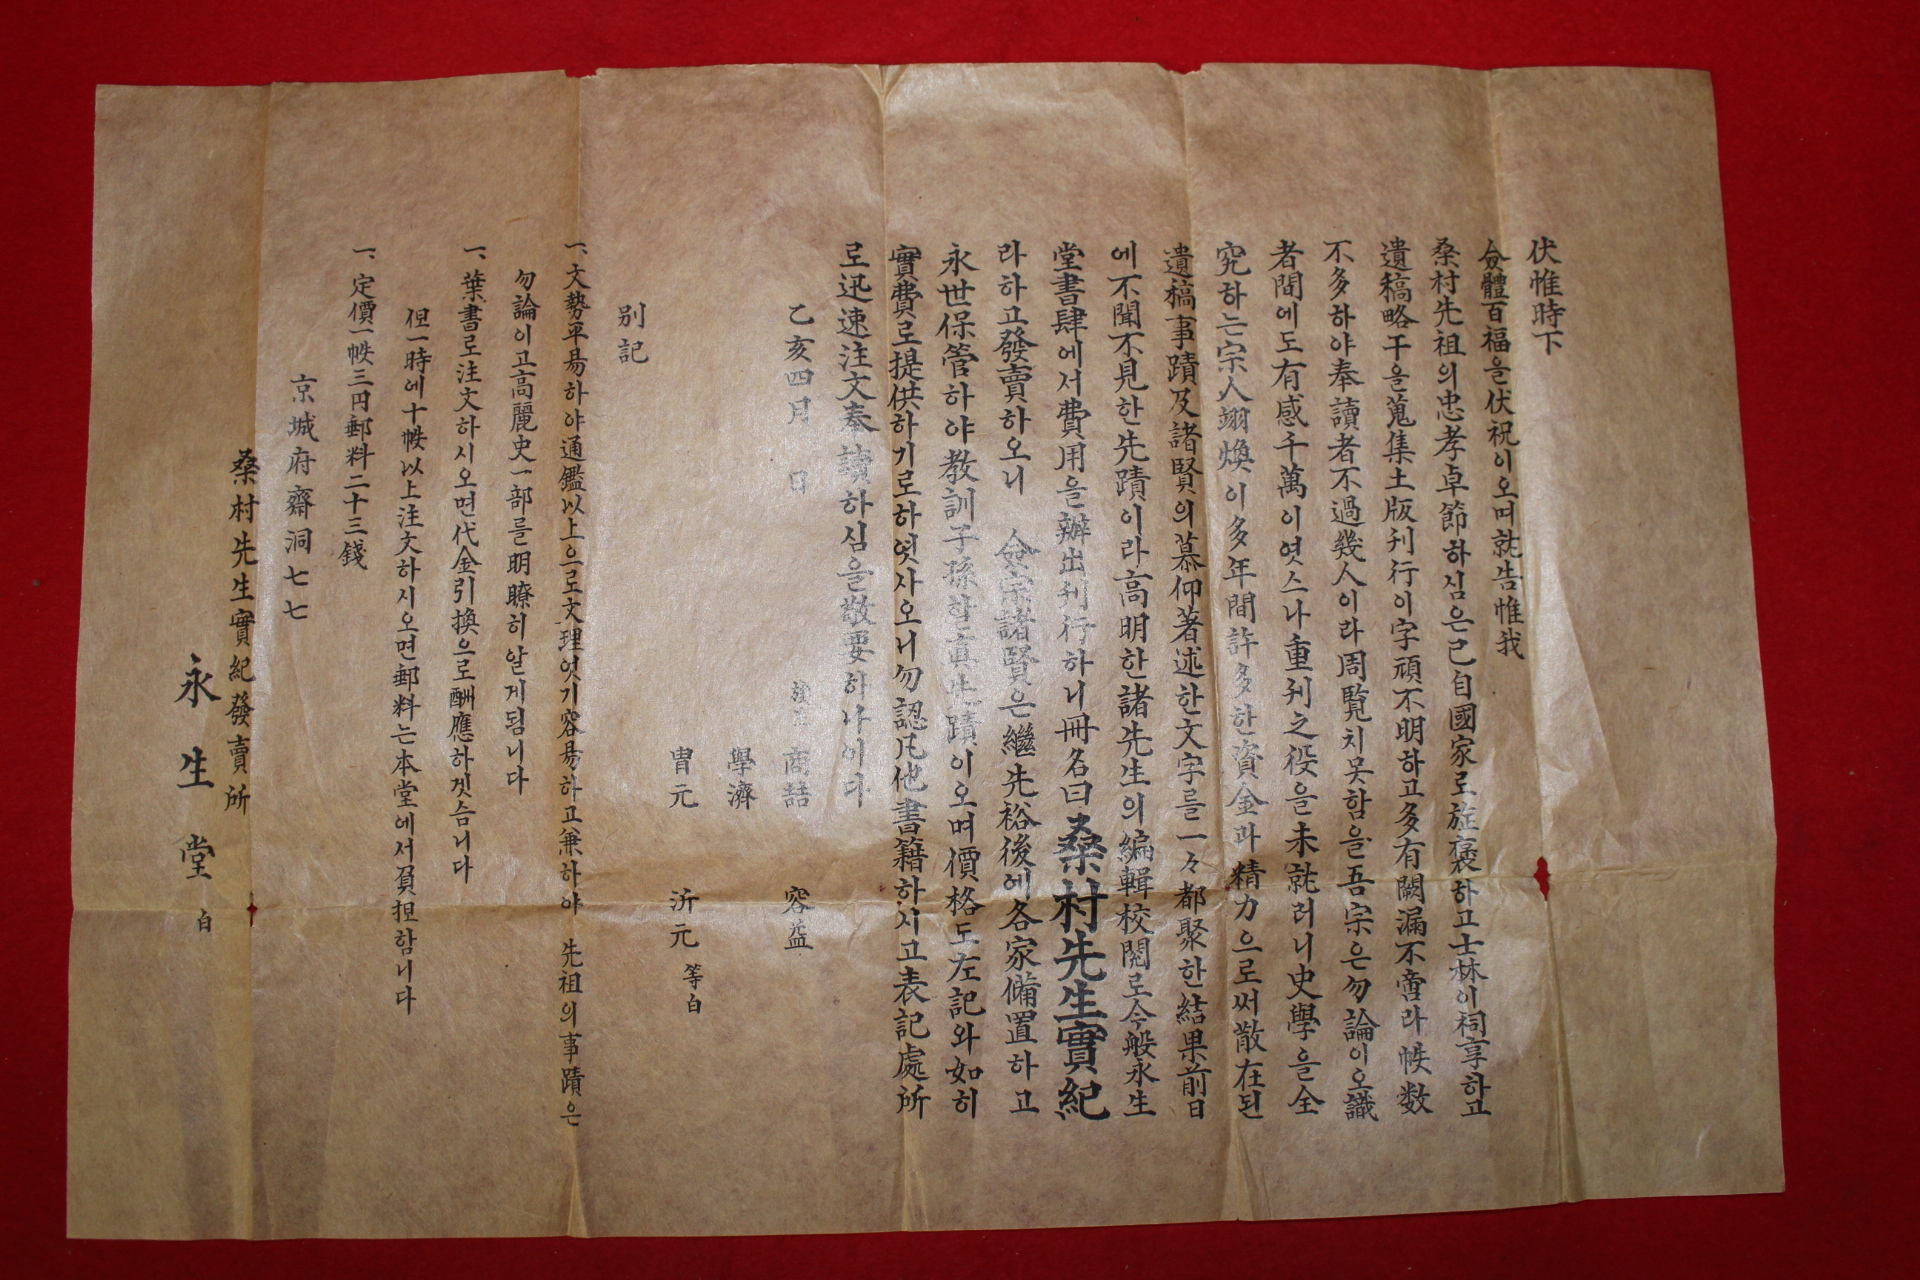 伏惟時下
僉體百福을伏祝이오며就告惟我
桑村先祖의忠孝卓節하심은已自國家로旌褒하고士林이祠享하고
遺稿略干을蒐集土版刊行이字頑不明하고多有闕漏不啻라帙数
不多하야奉讀者不過幾人이라周覧치못함을吾宗은勿論이오識
者間에도有感千萬이엿스나重刋之役을未就러니史學을全
究하는宗人翊煥이多年間許多한資金과精力으로써散在된
遺稿事蹟及諸賢의慕仰著述한文字를一々都聚한結果前日
에不聞不見한先蹟이라高明한諸先生의編輯校閱로今般永生
堂書肆에서費用을辦出刋行하니冊名曰桑村先生實紀
라하고發賣하오니 僉宗諸賢은繼先裕後에各家備置하고
永世保管하야敎訓子孫할眞先蹟이오며價格도左記와如히
實費로提供하기로하엿사오니勿認凡他書籍하시고表記處所
로迅速注文奉讀하심을敬要하나이다
乙亥四月 日 商喆 容益
學濟
胄元 沂元 等白
別記
一、文勢平易하야通鑑以上으로文理엇기容易하고兼하야 先祖의事蹟은
勿論이고高麗史一部를明瞭히알게됨니다
一、葉書로注文하시오면代金引換으로酬應하겟슴니다
但一時에十帙以上注文하시오면郵料는本堂에서負担함니다
一、定價一帙三円郵料二十三錢
京城府齋洞七七
桑村先生實紀發賣所
永生堂 白